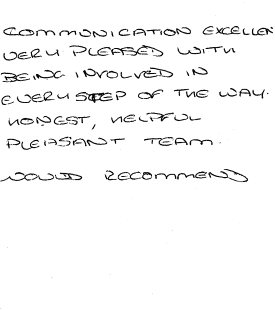 COMMUNICATION EXCELLEN
VERY PLEASED WITH
BEING INVOLVED IN
EVERY STEP OF THE WAY.
HONEST, HELPFUL
PLEASANT TEAM.
WOULD RECOMMEND